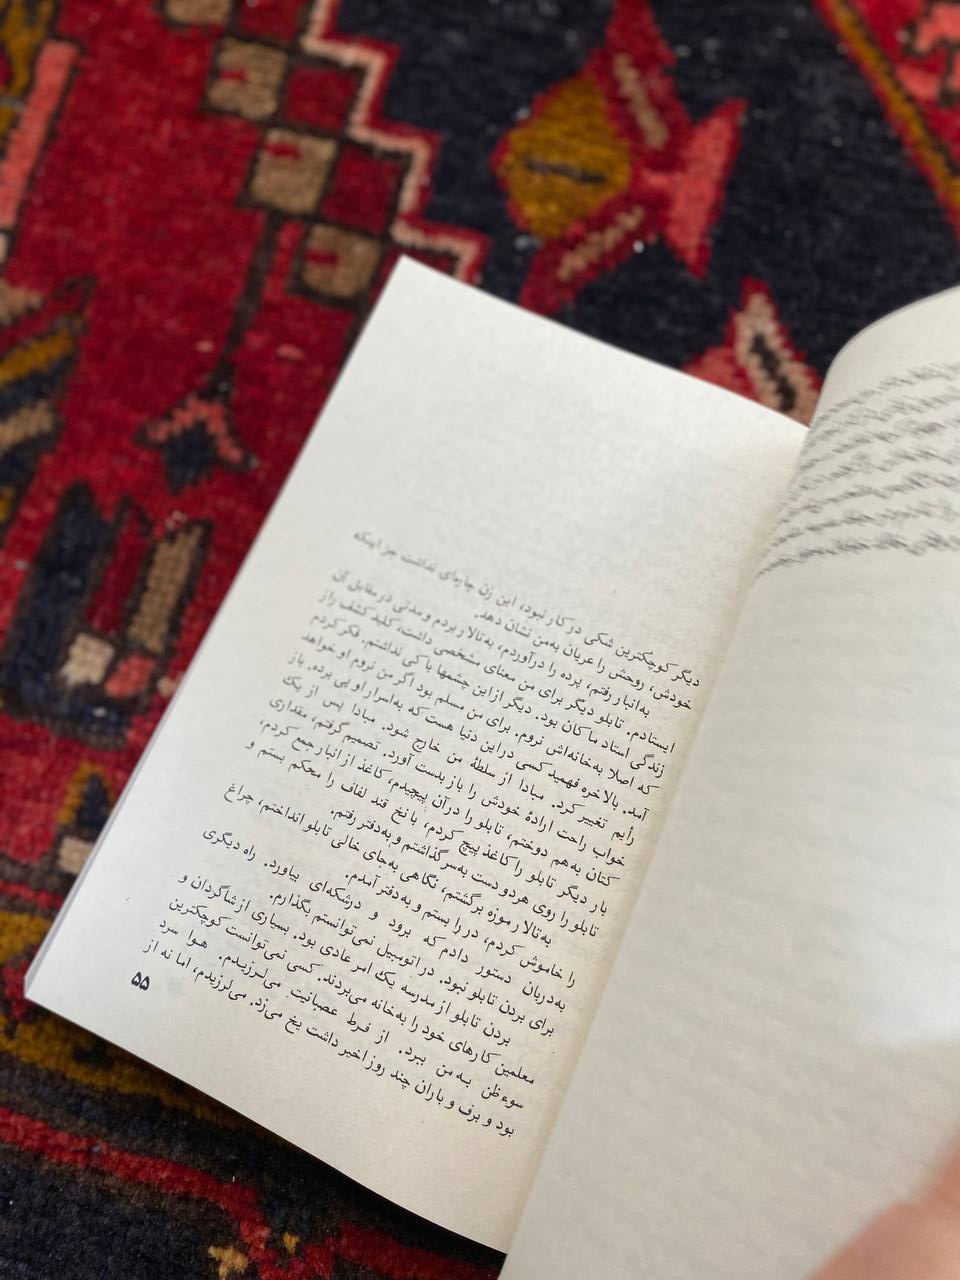 دیگر کوچکترین شکی در کار نبود، این زن چاره‌ای نداشت جز اینکه
خودش، روحش را عریان به‌من نشان دهد.
به‌انبار رفتم، پرده را درآوردم، به‌تالار بردم و مدتی در مقابل آن
ایستادم. تابلو دیگر برای من معنای مشخصی داشت، کلید کشف راز
زندگی استاد ماکان بود. دیگر از این چشمها باکی نداشتم. فکر کردم
که اصلا به‌خانه‌اش نروم. برای من مسلم بود اگر من نروم او خواهد
آمد. بالاخره فهمید کسی در این دنیا هست که به‌اسرار او پی برده. باز
رأیم تغییر کرد. مبادا از سلطهٔ من خارج شود. مبادا پس از یک
خواب راحت ارادهٔ خودش را باز بدست آورد. تصمیم گرفتم، مقداری
کتان به هم دوختم، تابلو را در آن پیچیدم، کاغذ از انبار جمع کردم،
بار دیگر تابلو را کاغذ پیچ کردم، با نخ قند لفاف را محکم بستم و
تابلو را روی هر دو دست به‌سر گذاشتم و به‌دفتر رفتم.
به‌تالار موزه برگشتم، نگاهی به‌جای خالی تابلو انداختم، چراغ
را خاموش کردم، در را بستم و به‌دفتر آمدم.
به‌دربان دستور دادم که برود و درشکه‌ای بیاورد. راه دیگری
برای بردن تابلو نبود. در اتومبیل نمی‌توانستم بگذارم.
بردن تابلو از مدرسه یک امر عادی بود. بسیاری از شاگردان و
معلمین کارهای خود را به‌خانه می‌بردند. کسی نمی‌توانست کوچکترین
سوءظن به من ببرد. از فرط عصبانیت می‌لرزیدم. هوا سرد
بود و برف و باران چند روز اخیر داشت یخ می‌زد. می‌لرزیدم، اما نه از
۵۵